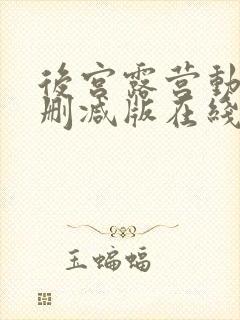 後宫露营動
删减版在綫
玉蝙蝠